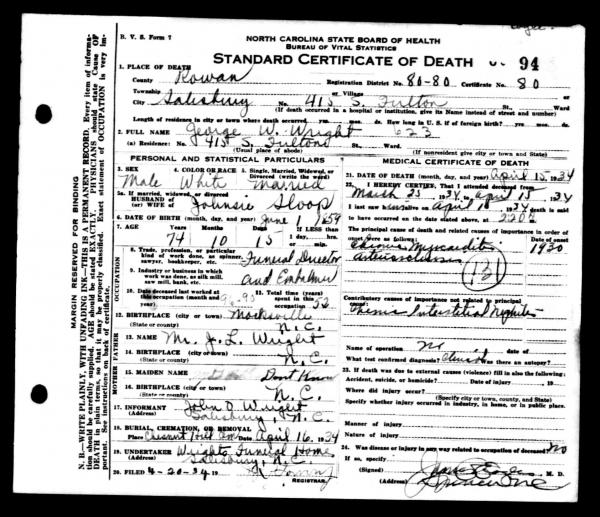 B. V. S. Form 7
NORTH CAROLINA STATE BOARD OF HEALTH
BUREAU OF VITAL STATISTICS
STANDARD CERTIFICATE OF DEATH 94
MARGIN RESERVED FOR BINDING
N. B.—WRITE PLAINLY, WITH UNFADING INK—THIS IS A PERMANENT RECORD. Every item of information should be carefully supplied. AGE should be stated EXACTLY. PHYSICIANS should state CAUSE OF DEATH in plain terms, so that it may be properly classified. Exact statement of OCCUPATION is very important. See instructions on back of certificate.
1. PLACE OF DEATH
County Rowan Registration District No. 80-80 Certificate No. 80
Township or Village
City Salisbury No. 415 S. Fulton St., Ward
(If death occurred in a hospital or institution, give its Name instead of street and number)
Length of residence in city or town where death occurred yrs. mos. ds. How long in U. S. if of foreign birth? yrs. mos. ds.
2. FULL NAME George W. Wright 623
(a) Residence: No. 415 S. Fulton St., Ward.
(Usual place of abode) (If nonresident give city or town and State)
PERSONAL AND STATISTICAL PARTICULARS
3. SEX 4. COLOR OR RACE 5. Single, Married, Widowed, or Divorced (write the word)
Male White Married
5a. If married, widowed, or divorced
HUSBAND of
(or) WIFE of Johnsie Sloop
6. DATE OF BIRTH (month, day, and year) June 1 1859
7. AGE Years Months Days If LESS than 1 day, hrs. or min.
74 10 15
OCCUPATION
8. Trade, profession, or particular kind of work done, as spinner, sawyer, bookkeeper, etc. Funeral Director
9. Industry or business in which work was done, as silk mill, saw mill, bank, etc. and Embalmer
10. Date deceased last worked at this occupation (month and year)
11. Total time (years) spent in this occupation 52
12. BIRTHPLACE (city or town) Mocksville
(State or county) N.C.
FATHER
13. NAME Mr. J. L. Wright
14. BIRTHPLACE (city or town)
(State or county) N.C.
MOTHER
15. MAIDEN NAME Dont Know
16. BIRTHPLACE (city or town)
(State or county) N.C.
17. INFORMANT John D Wright
(Address) Salisbury, N.C.
18. BURIAL, CREMATION, OR REMOVAL
Place Chestnut Hill Cem Date April 16, 1934
19. UNDERTAKER Wrights Funeral Home
(Address) Salisbury, N.C.
20. FILED 4-20-34
REGISTRAR
MEDICAL CERTIFICATE OF DEATH
21. DATE OF DEATH (month, day, and year) April 15 1934
22. I HEREBY CERTIFY, That I attended deceased from
March 25 1934, to April 15, 1934
I last saw him alive on April 1934 death is said
to have occurred on the date stated above, at
The principal cause of death and related causes of importance in order of onset were as follows: Date of onset
Myocarditis 1930
arteriosclerosis
131
Contributory causes of importance not related to principal cause:
Interstitial Nephritis
Name of operation no date of
What test confirmed diagnosis? Clinical Was there an autopsy?
23. If death was due to external causes (violence) fill in also the following:
Accident, suicide, or homicide? Date of injury 19
Where did injury occur?
(Specify city or town, county, and State)
Specify whether injury occurred in industry, in home, or in public place.
Manner of injury
Nature of injury
24. Was disease or injury in any way related to occupation of deceased? No
If so, specify
(Signed) M. D.
(Address)